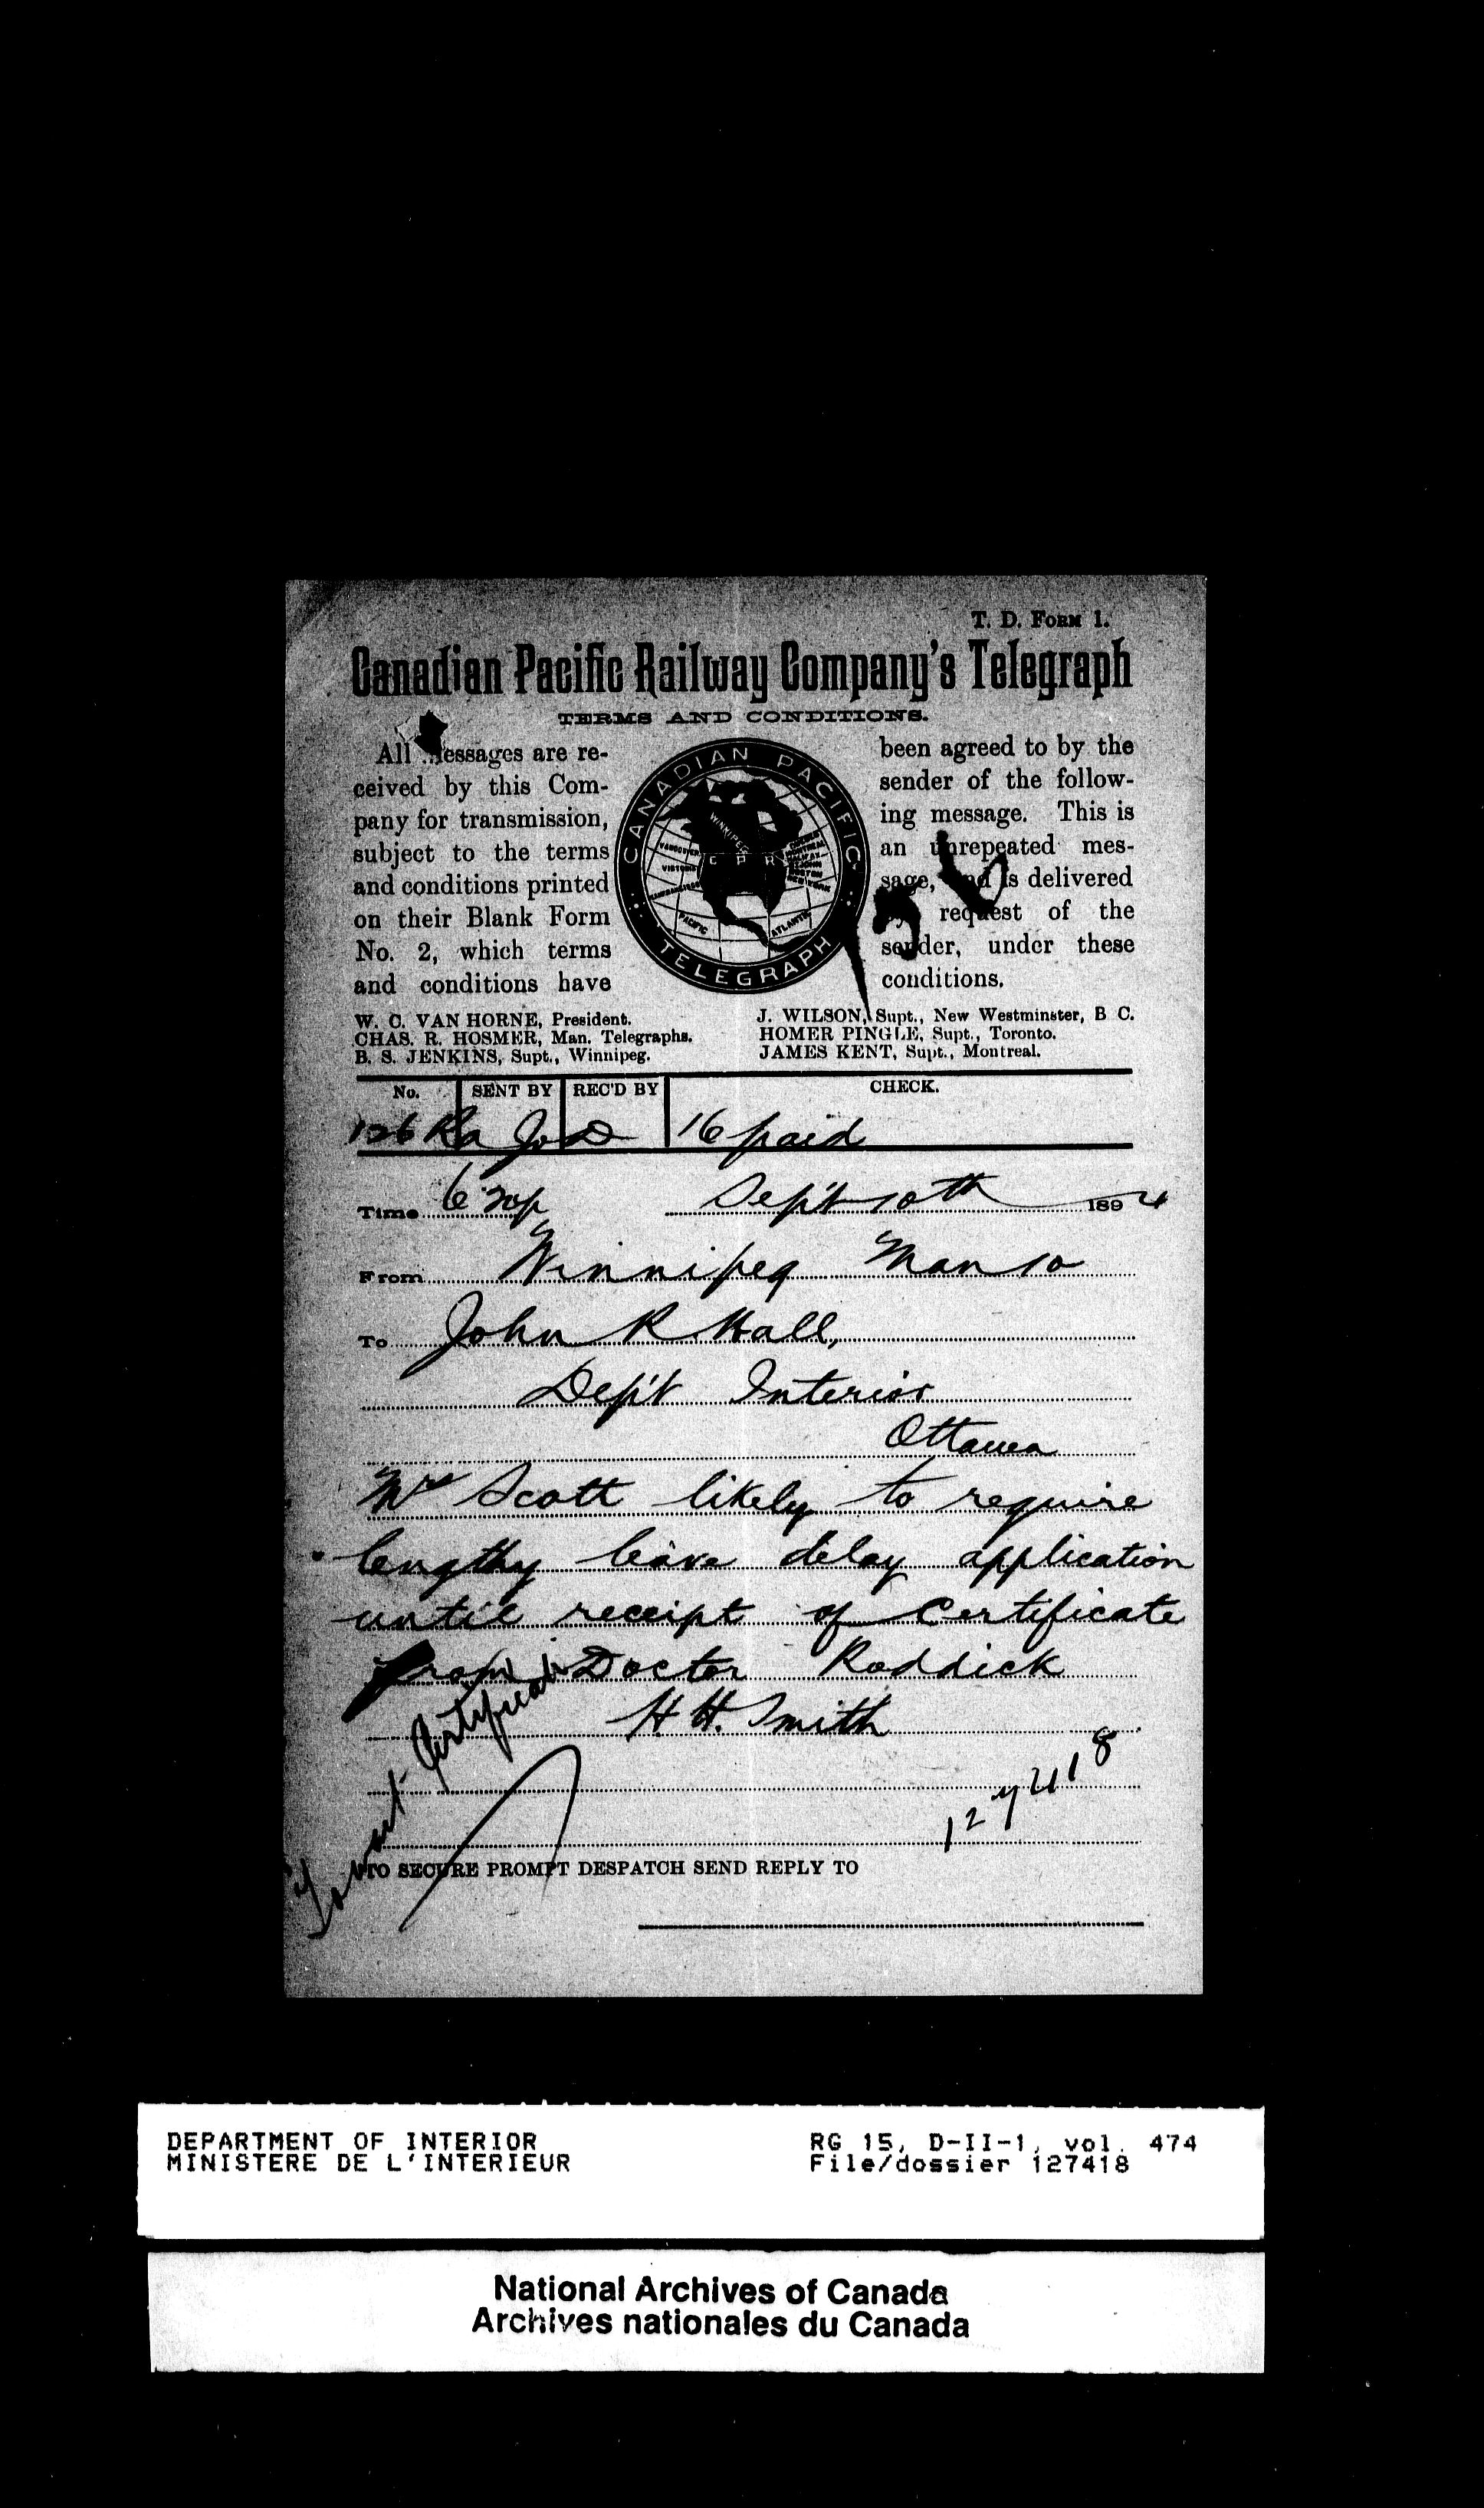 T. D. FORM 1.
Canadian Pacific Railway Company's Telegraph
TERMS AND CONDITIONS.
All Messages are re-
ceived by this Com-
pany for transmission,
subject to the terms
and conditions printed
on their Blank Form
No. 2, which terms
and conditions have
CANADIAN PACIFIC
WINNIPEG
VANCOUVER
VICTORIA
C P R
PACIFIC
ATLANTIC
TELEGRAPH
been agreed to by the
sender of the follow-
ing message. This is
an unrepeated mes-
sage, and is delivered
request of the
sender, under these
conditions.
W. C. VAN HORNE, President.
CHAS. R. HOSMER, Man. Telegraphs.
B. S. JENKINS, Supt., Winnipeg.
J. WILSON, Supt., New Westminster, B C.
HOMER PINGLE, Supt., Toronto.
JAMES KENT, Supt., Montreal.
No. SENT BY REC'D BY CHECK.
126 Ra 16 paid
Time Sept 10th 1894
From Winnipeg Man 10
To John R Hall,
Dep't Interior
Ottawa
Mrs Scott likely to require
lengthy leave delay application
until receipt of Certificate
from Doctor Roddick
H H. Smith
Certificate
127418
TO SECURE PROMPT DESPATCH SEND REPLY TO
DEPARTMENT OF INTERIOR
MINISTERE DE L'INTERIEUR
RG 15, D-II-1, vol. 474
File/dossier 127418
National Archives of Canada
Archives nationales du Canada